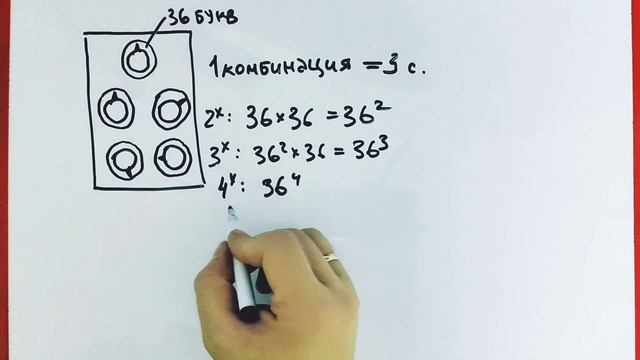 36 БУКВ
1 комбинация = 3 с.
2ˣ: 36 × 36 = 36²
3ˣ: 36² × 36 = 36³
4ˣ: 36⁴